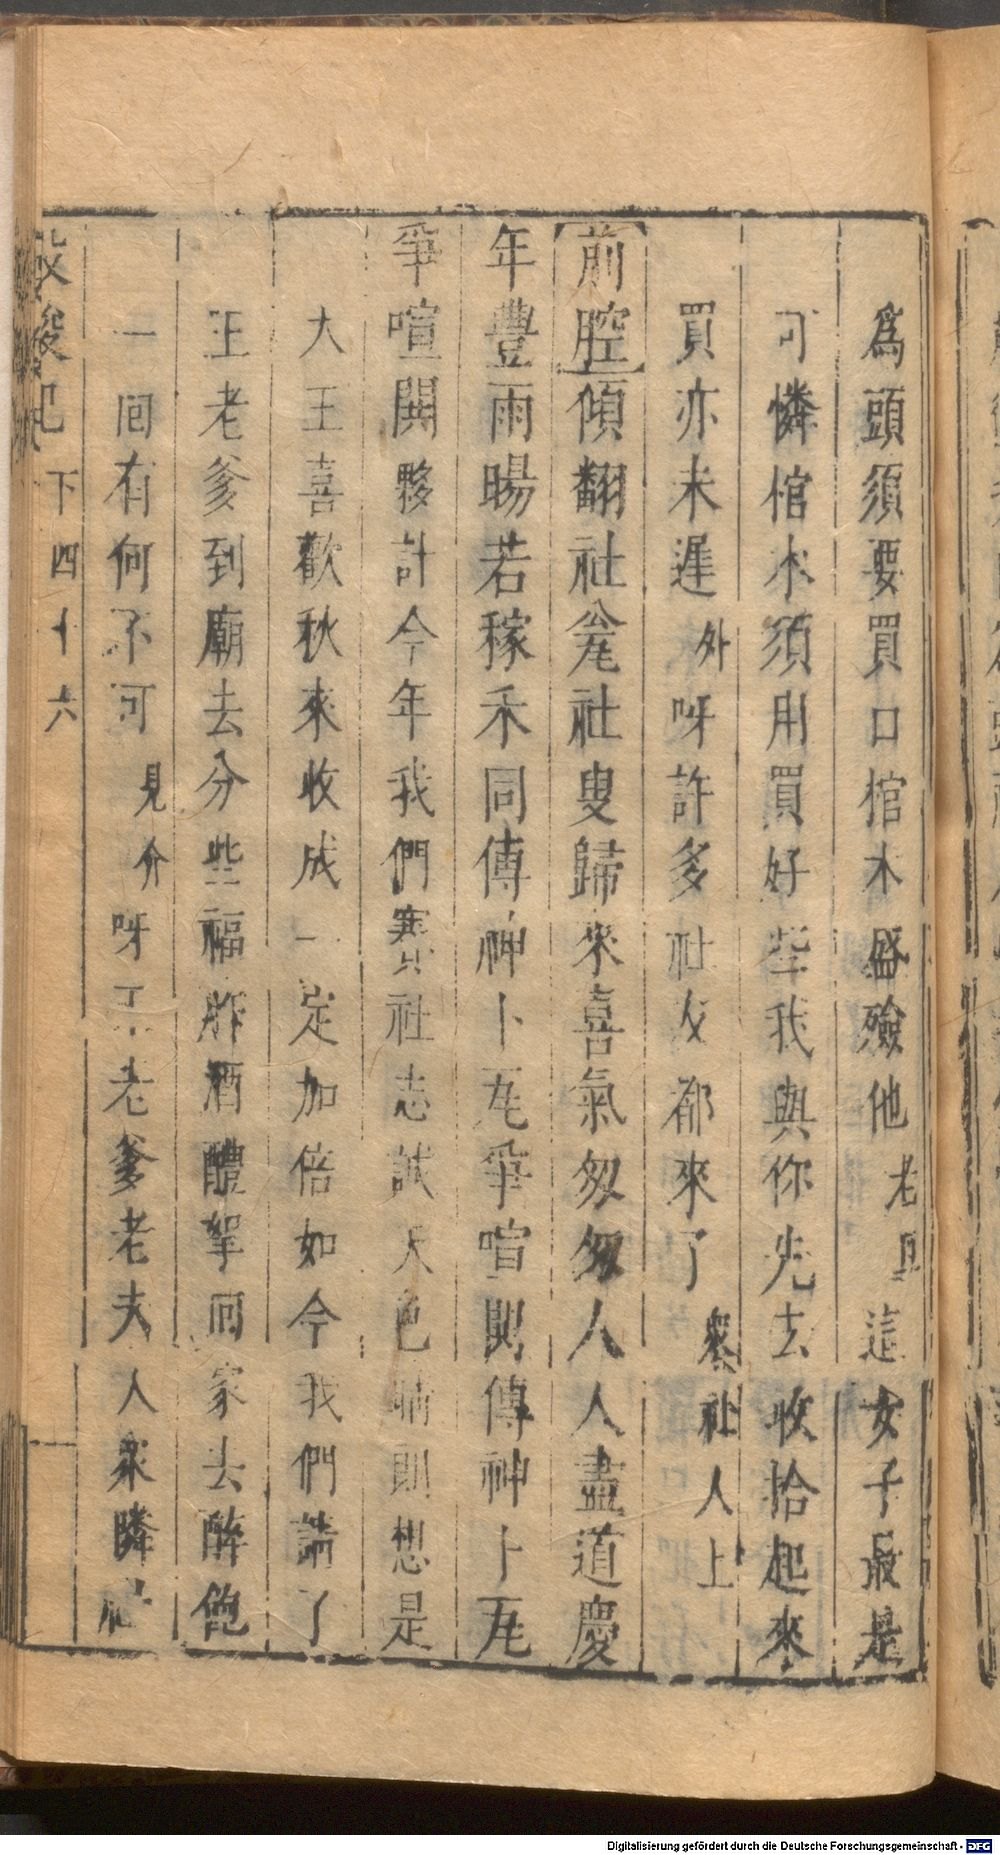 為頭須要買口棺木盛殮他老旦這女子最是
可憐棺木須用買好些我與你先去收拾起來
買亦未遲外呀許多社友都來了衆社人上
前腔傾翻社瓮社叟歸來喜氣匆匆人人盡道慶
年豐雨暘若稼禾同傳神卜瓦爭喧閧傳神卜瓦
爭喧閧夥計今年我們賽社志誠天色晴朗想是
大王喜歡秋來收成一定加倍如今我們請了
王老爹到廟去分些福胙酒醴拏回家去醉飽
一回有何不可見介呀王老爹老夫人衆隣
投梭記
下四十六
Digitalisierung gefördert durch die Deutsche Forschungsgemeinschaft - DFG